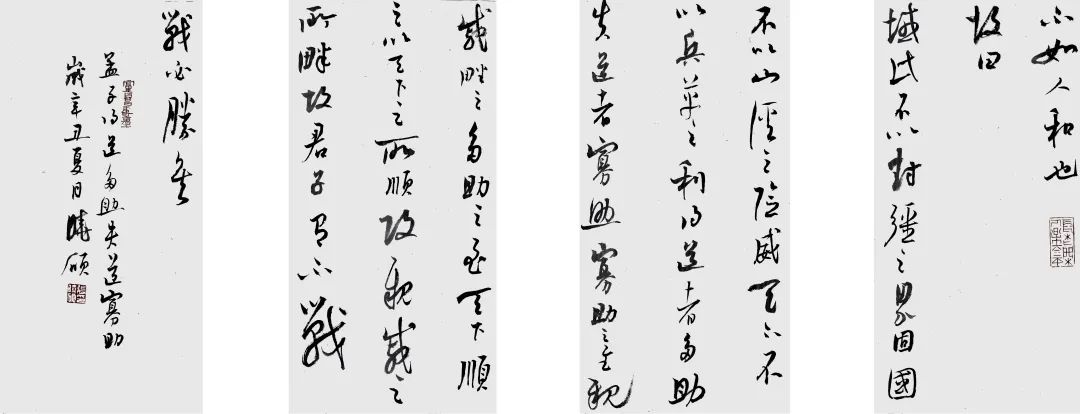 不如人和也
故曰
域民不以封疆之界固國
不以山溪之險威天下不
以兵革之利得道者多助
失道者寡助寡助之至親
戚畔之多助之至天下順
之以天下之所順攻親戚之
所畔故君子有不戰
戰必勝矣
孟子得道多助失道寡助
歲辛丑夏日